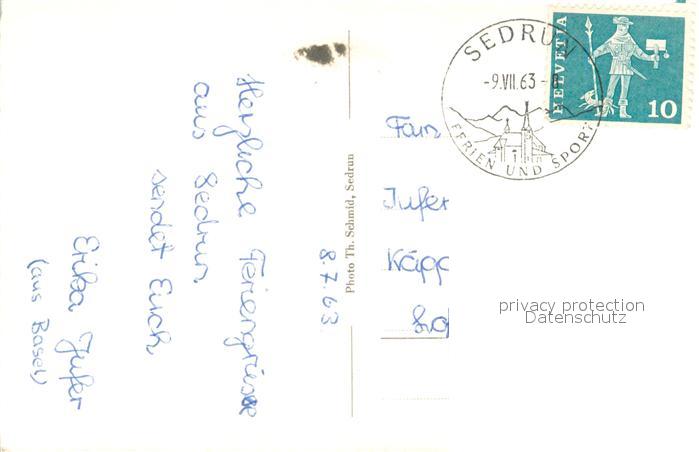 8.7.63
Herzliche Feriengrüsse
aus Sedrun
sendet Euch
Erika Jufer
(aus Basel)
Photo Th. Schmid, Sedrun
SEDRUN
-9.VII.63-
FERIEN UND SPORT
HELVETIA
10
Fam
Jufer
Käpp
privacy protection
Datenschutz